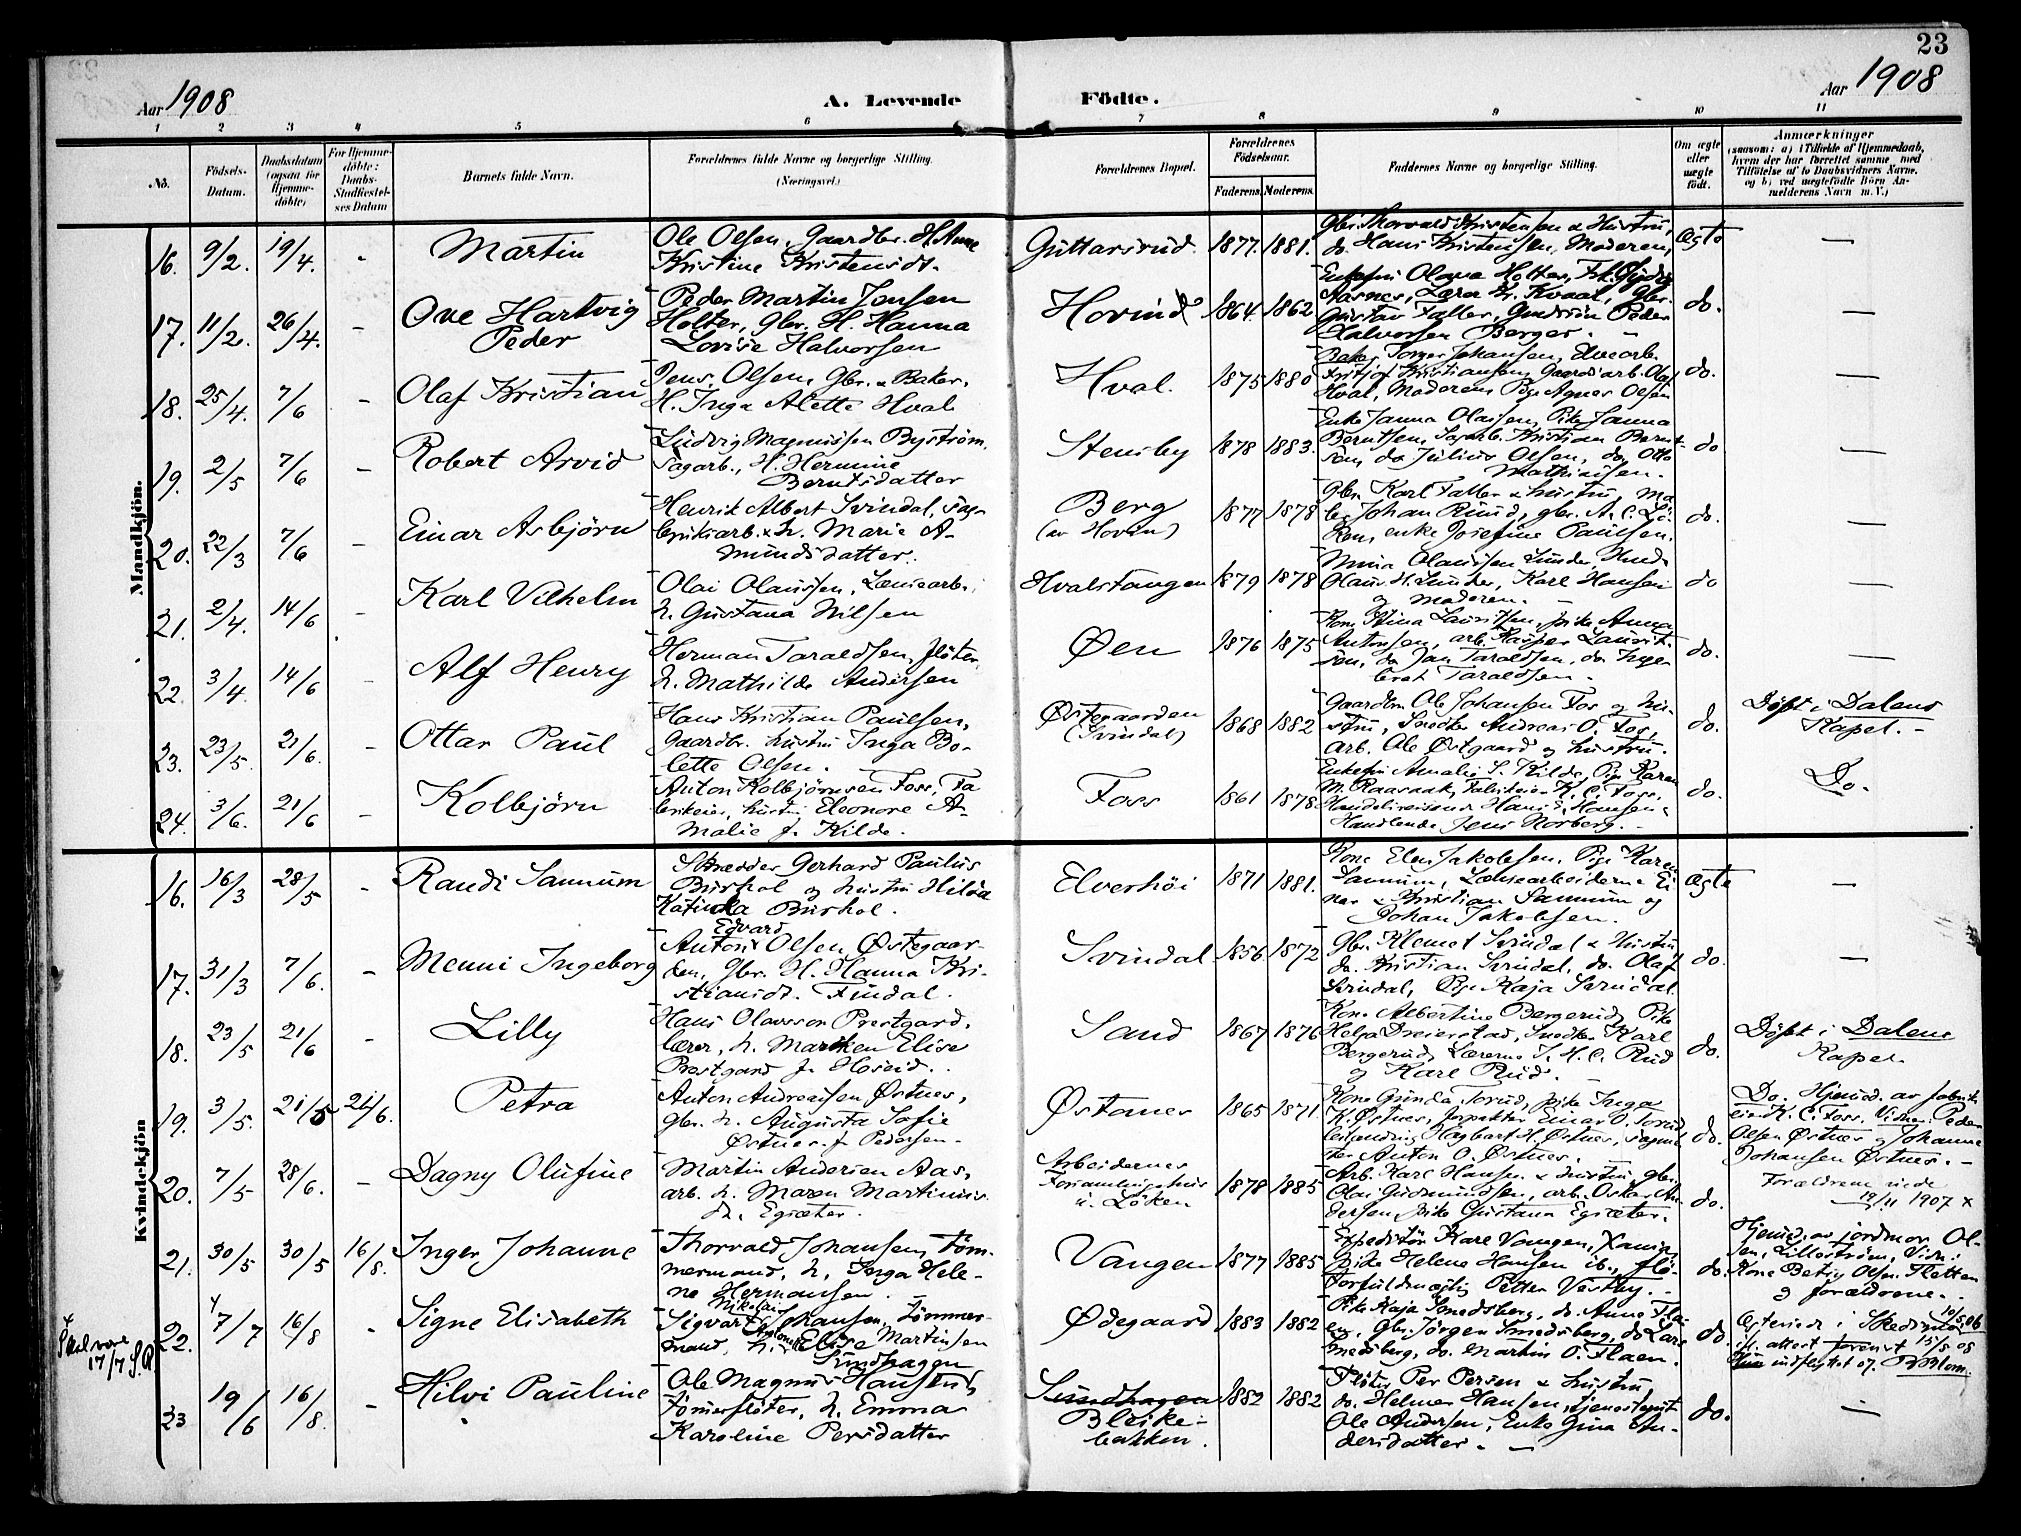 23
Aar 1908
A. Levende
Födte.
Aar 1908
1 2 3 4 5 6 7 8 9 10 11
No.
Födsels-Datum.
Daabsdatum (ogsaa for Hjemme-döbte)
For Hjemme-döbte: Daabs-Stadfæstel-ses Datum
Barnets fulde Navn.
Forældrenes fulde Navne og borgerlige Stilling. (Næringsvei.)
Forældrenes Bopæl.
Forældrenes Födselsaar.
Faderens. Moderens.
Faddernes Navne og borgerlige Stilling.
Om ægte eller uægte født.
Anmærkninger
(saasom: a) i Tilfælde af Hjemmedaab, hvem der har forrettet samme, med Tilföielse af to Daabsvidners Navne, og b) ved uægtefödte Börn Anmelderens Navn m. V.)
Mandkjön.
16. 9/2. 19/4. - Martin
Ole Olsen, Gaardbr. H. Anne
Kristine Kristensdt.
Guttarsrud. 1877. 1881.
Gbr. Thorvald Kristensen & Hustru,
do. Hans Kristensen, Moderen,
Ægte —
17. 11/2. 26/4. - Ove Hartvig
Peder
Peder Martin Jensen
Holter, Gbr. H. Hanna
Lovise Halvorsen
Hovind 1864. 1862
Enkefru Olava Holter, Frk.
Aasnes, Lærer Kr. Kvaal, Gbr.
Gustav Faller, Gudrun Peder
Halvorsen Berger. —
do. —
18. 25/4. 7/6 - Olaf Kristian
Jens Olsen, Gbr. & Baker.
H. Inga Alette Hval
Hval. 1875 1880
Baker Torger Johansen, Elvearb.
Fritjof Kristiansen, Gaardsarb. Olaf
Hval, Moderen Pige Agnes Olsen
do. —
19. 2/5 7/6 - Robert Arvid
Ludvig Magnussen Byström,
Sagarb., H. Hermine
Berntsdatter
Stensby 1878 1883.
Enke Janna Olaisen, Pike Janna
Berntsen, Sagarb. Kristian Bernt-
sen, do Julius Olsen, do. Otto
Mathisen.
do —
20. 22/3 7/6 - Einar Asbjörn
Henrik Albert Svindal, fag-
brukarb. & h. Marie A-
mundsdatter.
Berg
(av Hovin)
1877 1878
Gbr. Karl Faller & hustru, Ma-
ler Johan Ruud, gbr. A. C. Lö-
ken, enke Josefine Paulsen.
do. —
21. 2/4. 14/6 - Karl Vilhelm
Olai Olaussen, Lænsearb.,
h. Gustava Nilsen
Hvalstangen 1879 1878
Mina Olaussen Lunder,
Olaus H. Lunder, Karl Hansen
og Moderen.
do —
22. 3/4. 14/6 - Alf Henry
Herman Taraldsen, flöter,
h. Mathilde Andersen
Øen 1876 1875
Kone Stina Lauritsen, pike Anna
Antonsen, arb. Kasper Laurit-
sen, do Jan Taraldsen, do Inge-
bret Taraldsen.
do. —
23. 23/5. 21/6. - Ottar Paul
Hans Kristian Paulsen,
Gaardbr. hustru Inga Bo-
lette Olsen.
Østegaarden
(Svindal)
1868 1882
Gaardbr. Ole Johansen Fos og hu-
stru, Snedker Andreas O. Fos,
arb. Ole Østgaard og hustru.
do. Døpt i Dalens
Kapel. -
24. 3/6. 21/6 - Kolbjörn
Anton Kolbjörnsen Foss, Fa-
brikeier, hustru Eleonore A-
malie f. Kilde.
Foss 1861 1878
Enkefru Amalie S. Kilde, Pige Karen
M. Raavask, Fabrikeier K. C. Foss,
Handelsreisende Hans E. Hansen,
Handlende Jens Norberg. -
do. Do.
Kvindekjön
16. 16/3 28/5 - Randi Sannum
Skrædder Gerhard Paulus
Burhol og hustru Hilda
Katinka Burhol.
Elverhöi 1871 1881.
Kone Elen Jakobsen, Pige Karen
Sannum, Lænsearbeiderne Ei-
nar & Kristian Sannum og
Johan Jakobsen.
Ægte —
17. 31/3 7/6. - Menni Ingeborg
Edvard
Anton Olsen Østegaar-
den, Gbr. H. Hanna Kri-
stiansdt. Findal.
Svindal 1856. 1872
Gbr. Klemet Svindal & Hustru
do. Kristian Svindal, do. Olaf
Svindal, Pige Kaja Svindal.
do. —
18. 23/5 21/6 - Lilly
Hans Olavsson Prestgard,
lærer, h. Marken Elise
Prestgard f. Hoseid.
Sand 1867 1876
Kone Albertine Bergerud, Pike
Helga Dreierstad, Snedker Karl
Bergerud, Lærerne J. H. C. Rud
og Karl Rud. —
do. Døpt i Dalens
Kapel.
19. 3/5. 21/5 21/6. Petra
Anton Andreassen Østnes,
gbr. h. Augusta Sofie
Østnes f. Pedersen.
Østanes 1865 1871.
Kone Gunda Torud, pike Inga
K. Østnes, Inspektör Einar O. Torud
Hagbart H. Østnes, sagmes-
ter Anton O. Østnes.
do. Do. Hjemd. av fabrik-
eier K. C. Foss. Vidner: Peder
Olsen Østnes og Johanne
Johansen Østnes. -
20. 7/5 28/6. - Dagny Olufine
Martin Andersen Aas,
arb. h. Maren Martinus-
dt. Egsæter.
Arbeidernes
Forsamlingshus
v. Löken
1878 1885
Arb. Karl Hansen & hustru, gbr.
Olai Gudmundsen, arb. Oskar An-
dersen, pike Gustava Egsæter.
do. Forældrene viede
19/11 1907 x
21. 30/5 30/5 16/8. Inger Johanne
Thorvald Johansen, töm-
mermand, h. Inga Hele-
ne Hermansen.
Vangen 1877 1885
Expeditör Karl Vangen,
pike Helene Hansen ib., flö-
Forfuldmægtig Petter Vestby. —
do. Hjemd. av jordmor Ol-
sen, Lilleström, Vidn:
Kone Betzy Olsen Fletten
og forældrene. -
x Skal være 17/7 S.A.
22. x 7/7 16/8 - Signe Elisabeth
Nikolai
Sigvart Johansen, Tömmer-
mand, h. Elise Martinsen
Sundhagen
Ødegaard 1883 1882
Pike Kaja Smedsberg, do. Anne Fla-
en, Gbr. Jörgen Smedsberg, do Lars
Smedsberg, do. Martin O. Flaen.
do. Ægteviede i Skedsmo 10/5 06
ifl. attest forevist 15/5 08
indflyttet og. B. Blom.
23 19/6 16/8. - Hilvi Pauline
Ole Magnus Hansen,
Tömerflöter, h. Emma
Karoline Persdatter
Sundhagen
Bleike-
bakken.
1882 1882
Flöter Per Persen & hustru,
do. Helmer Hansen, tjenestepike
Ole Andersen, Enke Gina An-
dersdatter. —
do. —